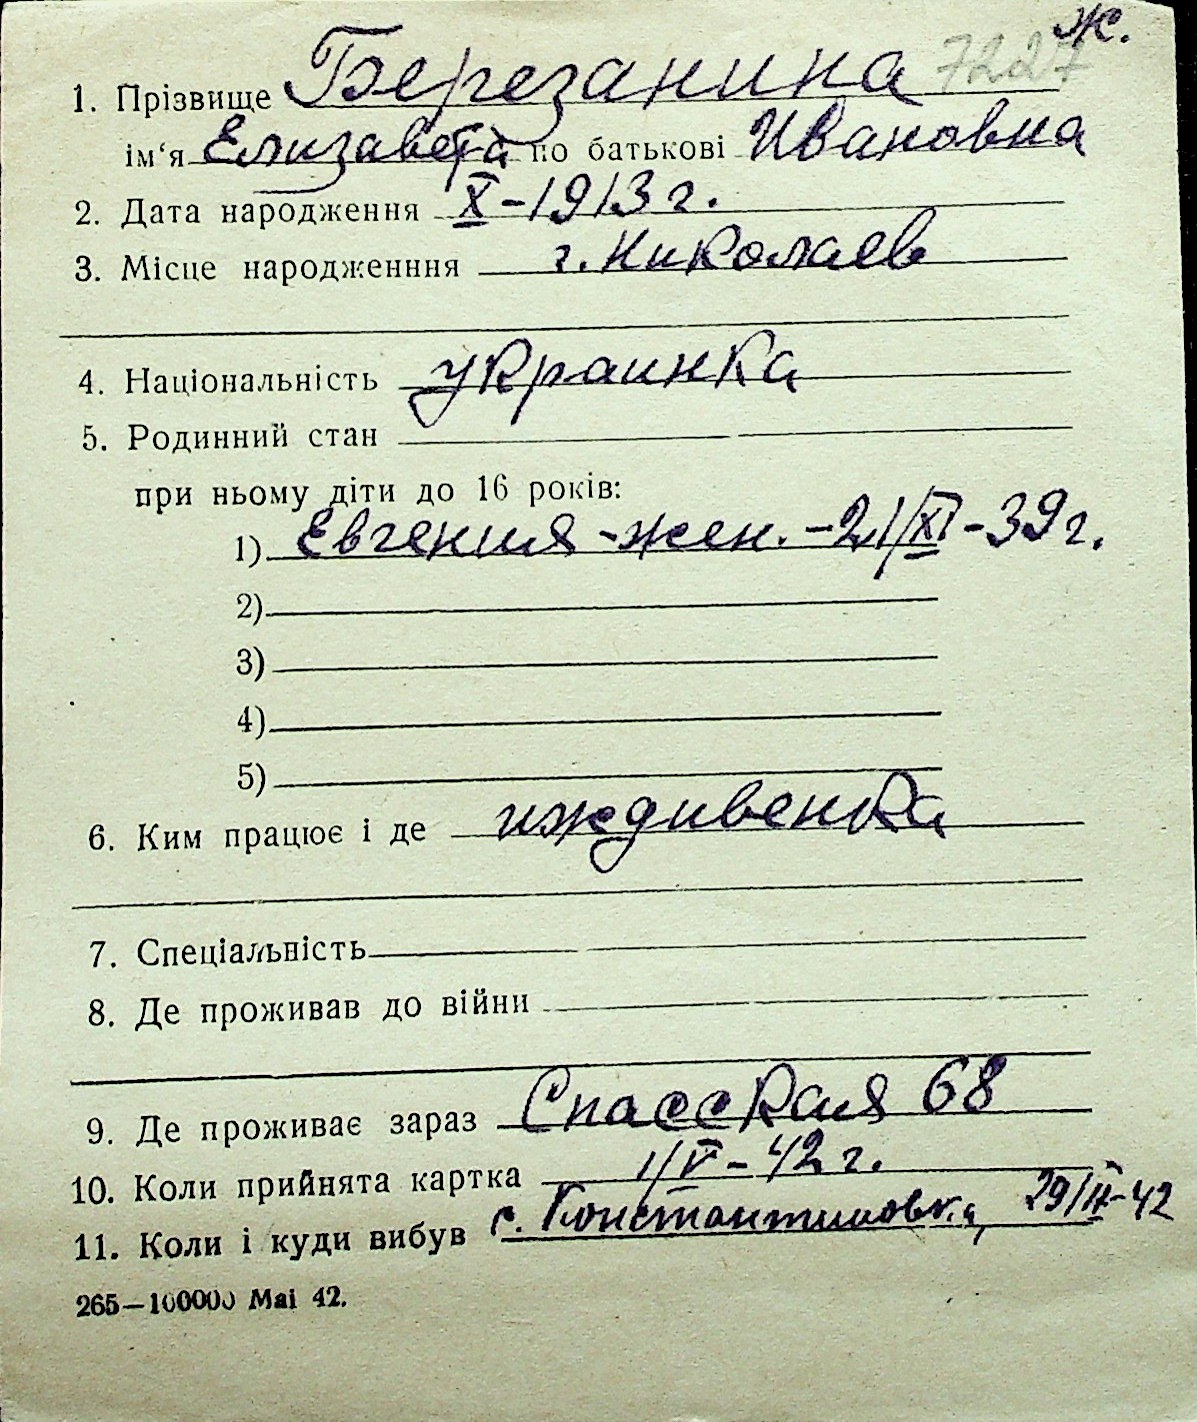 ж.
1. Прізвище Березанина 7227
ім‘я Елизавета по батькові Ивановна
2. Дата народження X-1913 г.
3. Місце народженння г. Николаев
4. Національність украинка
5. Родинний стан
при ньому діти до 16 років:
1) Евгения - жен. - 21/XI-39 г.
2)
3)
4)
5)
6. Ким працює і де иждивенка
7. Спеціальність
8. Де проживав до війни
9. Де проживає зараз Спасская 68
10. Коли прийнята картка 1/V-42 г.
11. Коли і куди вибув с. Константиновка, 29/ -42
265—100000 Mai 42.